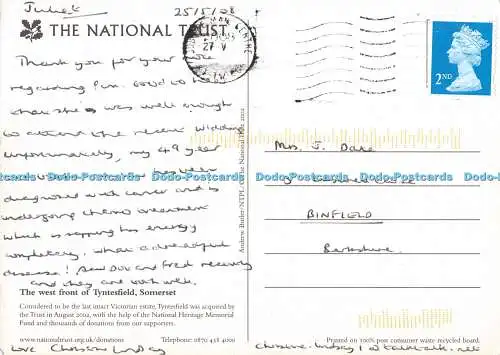 Juliet
25/5/08
THE NATIONAL TRUST
27 V
2ND
Thank you for your note
regarding Pim. Good to hear
that she was well enough
to attend the recent wedding
Unfortunately, my 49 year
has been
diagnosed with cancer and is
undergoing chemo treatment
which is sapping his energy
completely. What a dreadful
disease! Saw Don and Fred recently
and they are both well.
Love Christine Lindsay
Andrew Butler/NTPL ©The National Trust 2002
Mrs J. Dale
BINFIELD
Berkshire.
Dodo-Postcards Dodo-Postcards Dodo-Postcards Dodo-Postcards Dodo-Postcards Dodo-Postcards
The west front of Tyntesfield, Somerset
Considered to be the last intact Victorian estate, Tyntesfield was acquired by
the Trust in August 2002, with the help of the National Heritage Memorial
Fund and thousands of donations from our supporters.
www.nationaltrust.org.uk/donations Telephone: 0870 458 4000
Printed on 100% post consumer waste recycled board.